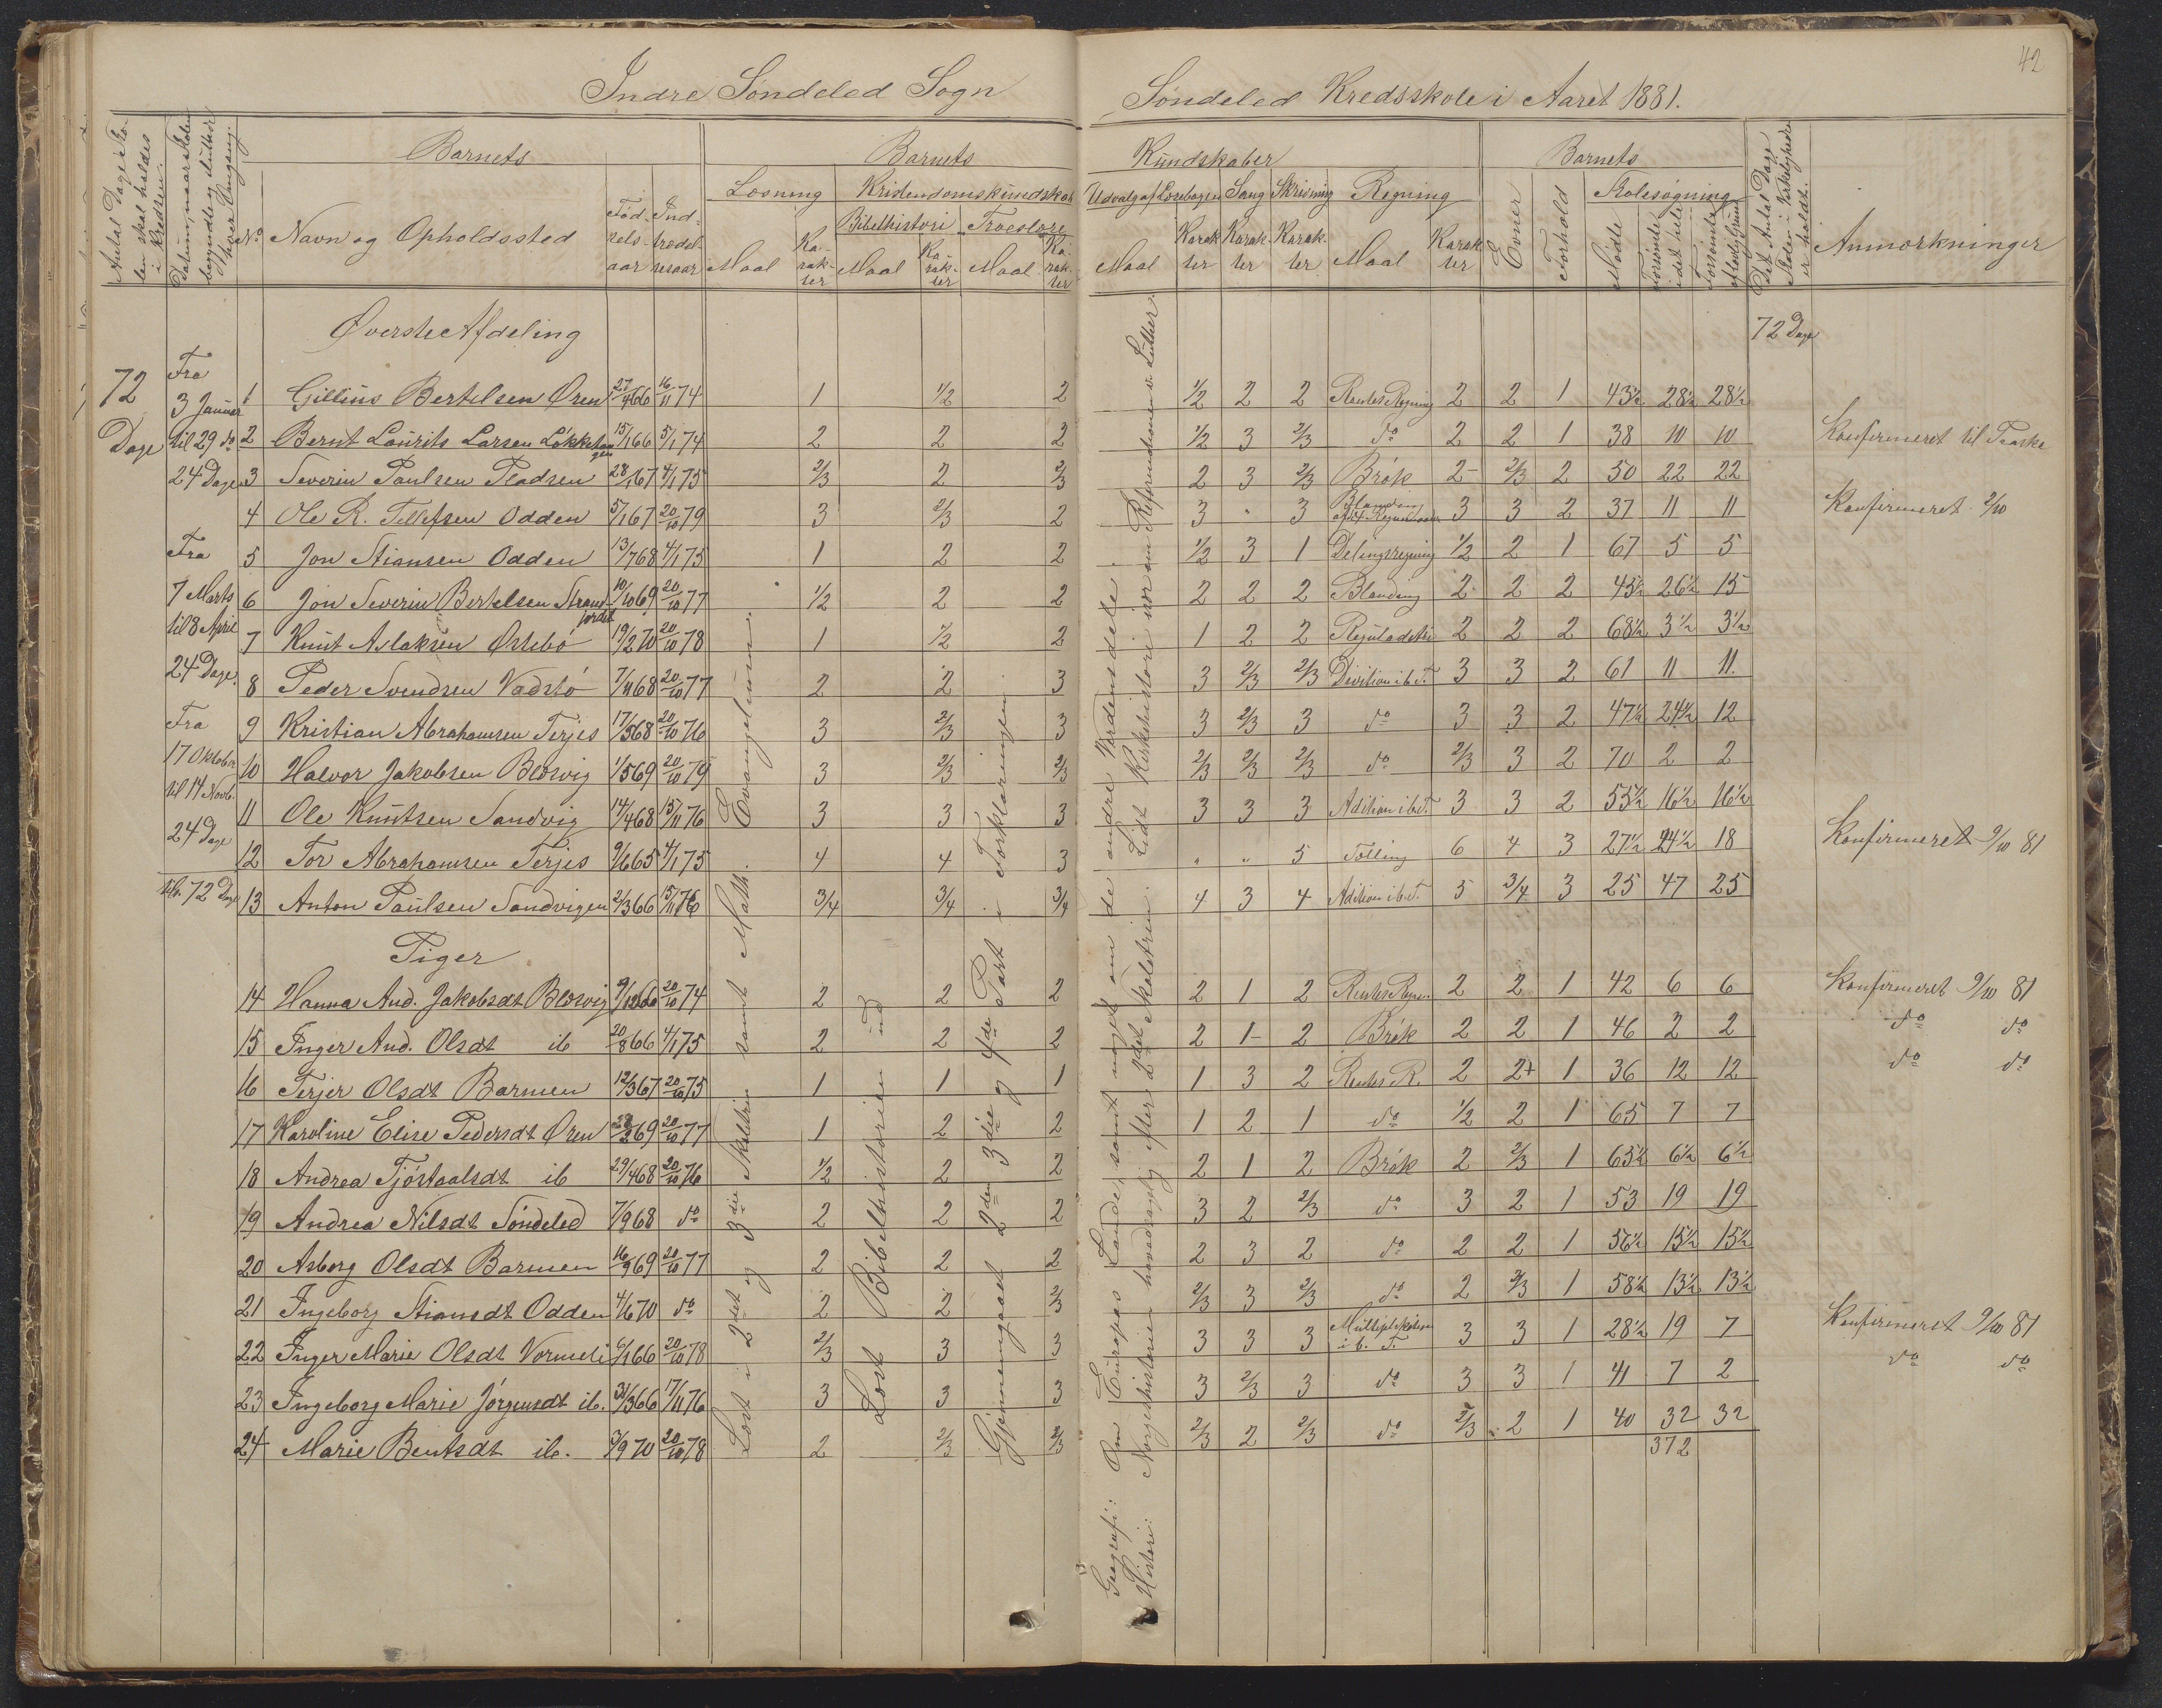 42
Indre Søndeled Sogn
Søndeled Kredsskole i Aaret 1881.
Antal Dage Skolen skal holdes i Kredsen.
Datum, naar Skolen begyndte og sluttede hver Omgang.
No
Barnets
Navn og Opholdssted
Fødselsaar
Indtrædelsesaar
Barnets
Kundskaber
Læsning
Maal
Karakter
Kristendomskundskab
Bibelhistori
Maal
Karakter
Troeslære
Maal
Karakter
Udvalg af Læsebogen
Maal
Karakter
Sang
Karakter
Skrivning
Karakter
Regning
Maal
Karakter
Barnets
Evner
Forhold
Skolesøgning
Mødte
Forsømte i det hele
Forsømte af lovlig Grund
Det Antal Dage Skolen i Virkeligheden er holdt.
Anmærkninger
Øverste Afdeling
72 Dage
72 Dage
Fra 3 Januar til 29 do 24 Dage
Fra 7 Marts til 8 April 24 Dage.
Fra 17 Oktober til 14 Novb. 24 Dage
72 Dage
1 Gillius Bertelsen Øren 27/4 66 16/11 74 1 1/2 2 1/2 2 2 Rentes Regning 2 2 1 43½ 28½ 28½
2 Bernt Laurits Larsen 15/1 66 5/1 74 2 2 2 1/2 3 2/3 do 2 2 1 38 10 10 Konfirmeret til Paaske
3 Severin Paulsen Pladsen 28/1 67 4/1 75 2/3 2 2/3 2 3 2/3 Brøk 2- 2/3 2 50 22 22
4 Ole R. Tellefsen Odden 5/1 67 20/10 79 3 2/3 2 3 " 3 Blanding 3 3 2 37 11 11 Konfirmeret 2/10
5 Jon Stiansen Odden 13/7 68 4/1 75 1 2 2 1/2 3 1 Delingsregning 1/2 2 1 67 5 5
6 Jon Severin Bertelsen Strandjordet 10/10 69 20/10 77 1/2 2 2 2 2 2 Blanding 2 2 2 45½ 26½ 15
7 Knut Aslaksen Østebø 19/2 70 20/10 78 1 1/2 2 1 2 2 Reguladetri 2 2 2 68½ 3½ 3½
8 Peder Svendsen Vadstø 7/11 68 20/10 77 2 2 3 3 2/3 2/3 Divition i b. T. 3 3 2 61 11 11.
9 Kristian Abrahamsen Terjes 17/5 68 20/10 76 3 2/3 3 3 2/3 3 do 3 3 2 47½ 24½ 12
10 Halvor Jakobsen Blæsvig 1/5 69 20/10 79 3 2/3 2/3 2/3 2/3 2/3 do 2/3 3 2 70 2 2
11 Ole Knutsen Sandvig 14/4 68 15/11 76 3 3 3 3 3 3 Adition i b. T. 3 3 2 55½ 16½ 16½
12 Tor Abrahamsen Terjes 9/6 65 4/1 75 4 4 3 " " 5 Tælling 6 4 3 27½ 24½ 18 Konfirmeret 9/10 81
13 Anton Paulsen Sandvigen 2/3 66 15/11 76 3/4 3/4 3/4 4 3 4 Adition i b. T. 5 3/4 3 25 47 25
Piger
14 Hanna And. Jakobsdt Blæsvig 9/12 66 20/10 74 2 2 2 2 1 2 Rentes Regn. 2 2 1 42 6 6 Konfirmeret 9/10 81
15 Inger And. Olsdt ib 20/8 66 4/1 75 2 2 2 2 1- 2 Brøk 2 2 1 46 2 2 do do
16 Terjer Olsdt Barmen 12/3 67 20/10 75 1 1 1 1 3 2 Rentes R. 2 2+ 1 36 12 12 do do
17 Karoline Elise Pedersdt Øren 69 20/10 77 1 2 2 1 2 1 do 1/2 2 1 65 7 7
18 Andrea Tjøstaalsdt ib 29/4 68 20/10 76 1/2 2 2 2 1 2 Brøk 2 2/3 1 65½ 6½ 6½
19 Andrea Nilsdt Søndeled 7/9 68 do 2 2 2 3 2 2/3 do 3 2 1 53 19 19
20 Asborg Olsdt Barmen 16/9 69 20/10 77 2 2 2 2 3 2 do 2 2 1 56½ 15½ 15½
21 Ingeborg Stiansdt Odden 4/6 70 do 2 2 2/3 2/3 3 2/3 do 2 2/3 1 58½ 13½ 13½
22 Inger Marie Olsdt Vormeli 6/1 66 20/10 78 2/3 3 3 3 3 3 Multiplikation i b. T. 3 3 1 28½ 19 7 Konfirmeret 9/10 81
23 Ingeborg Marie Jørgensdt ib. 31/3 66 17/11 76 3 3 3 3 2/3 3 do 3 3 1 41 7 2 do do
24 Marie Bentsdt ib. 3/9 70 20/10 78 2 2/3 2/3 2/3 2 2/3 do 2/3 2 1 40 32 32
372
Læst i 2det og 3die Skoletrin samt Math. Evangelium.
Læst Bibelhistorien ud
Gjennemgaaet 2den 3die og 4de Part i Forklaringen.
Geografi: Om Europas Lande, samt noget om de andre Verdensdele.
Historie: Norgeshistorien hovedsagelig efter 2det Skoletrin. Lidt Kirkehistorie især om Reformationen v. Luther.